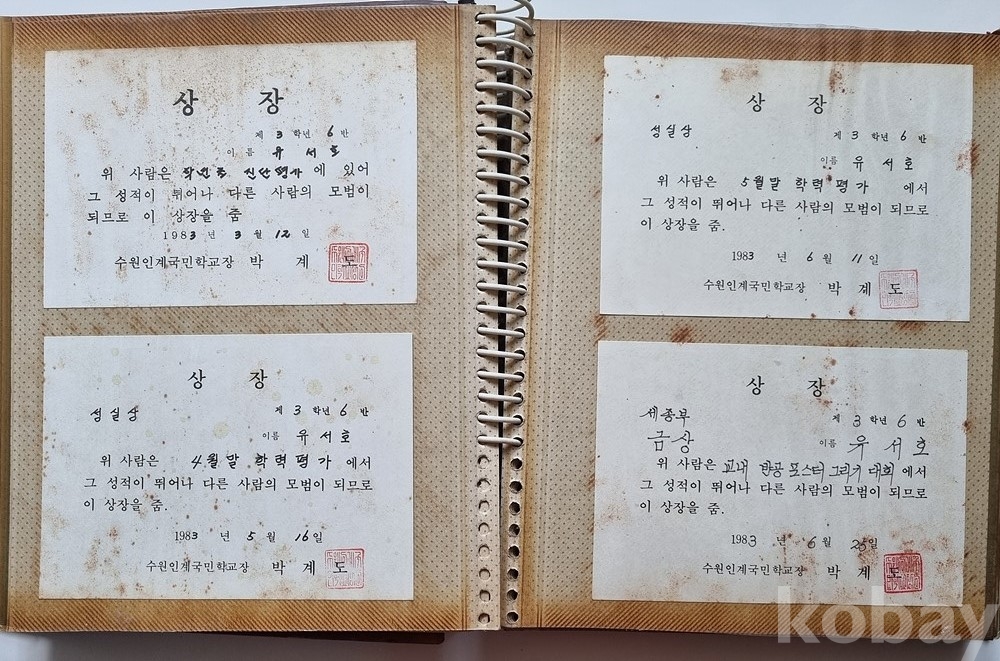 상 장
제 3 학년 6 반
이름 유 서 호
위 사람은 진단평가 에 있어
그 성적이 뛰어나 다른 사람의 모범이
되므로 이 상장을 줌
1983 년 3 월 12 일
수원인계국민학교장 박 계 도
상 장
성실상 제 3 학년 6 반
이름 유 서 호
위 사람은 4월말 학력평가 에서
그 성적이 뛰어나 다른 사람의 모범이 되므로
이 상장을 줌.
1983 년 5 월 16 일
수원인계국민학교장 박 계 도
상 장
성실상 제 3 학년 6 반
이름 유 서 호
위 사람은 5월말 학력평가 에서
그 성적이 뛰어나 다른 사람의 모범이 되므로
이 상장을 줌.
1983 년 6 월 11 일
수원인계국민학교장 박 계 도
상 장
세종부 제 3 학년 6 반
금상 이름 유 서 호
위 사람은 교내 반공 포스터 그리기 대회 에서
그 성적이 뛰어나 다른 사람의 모범이 되므로
이 상장을 줌.
1983 년 6 월 25일
수원인계국민학교장 박 계 도
kobay